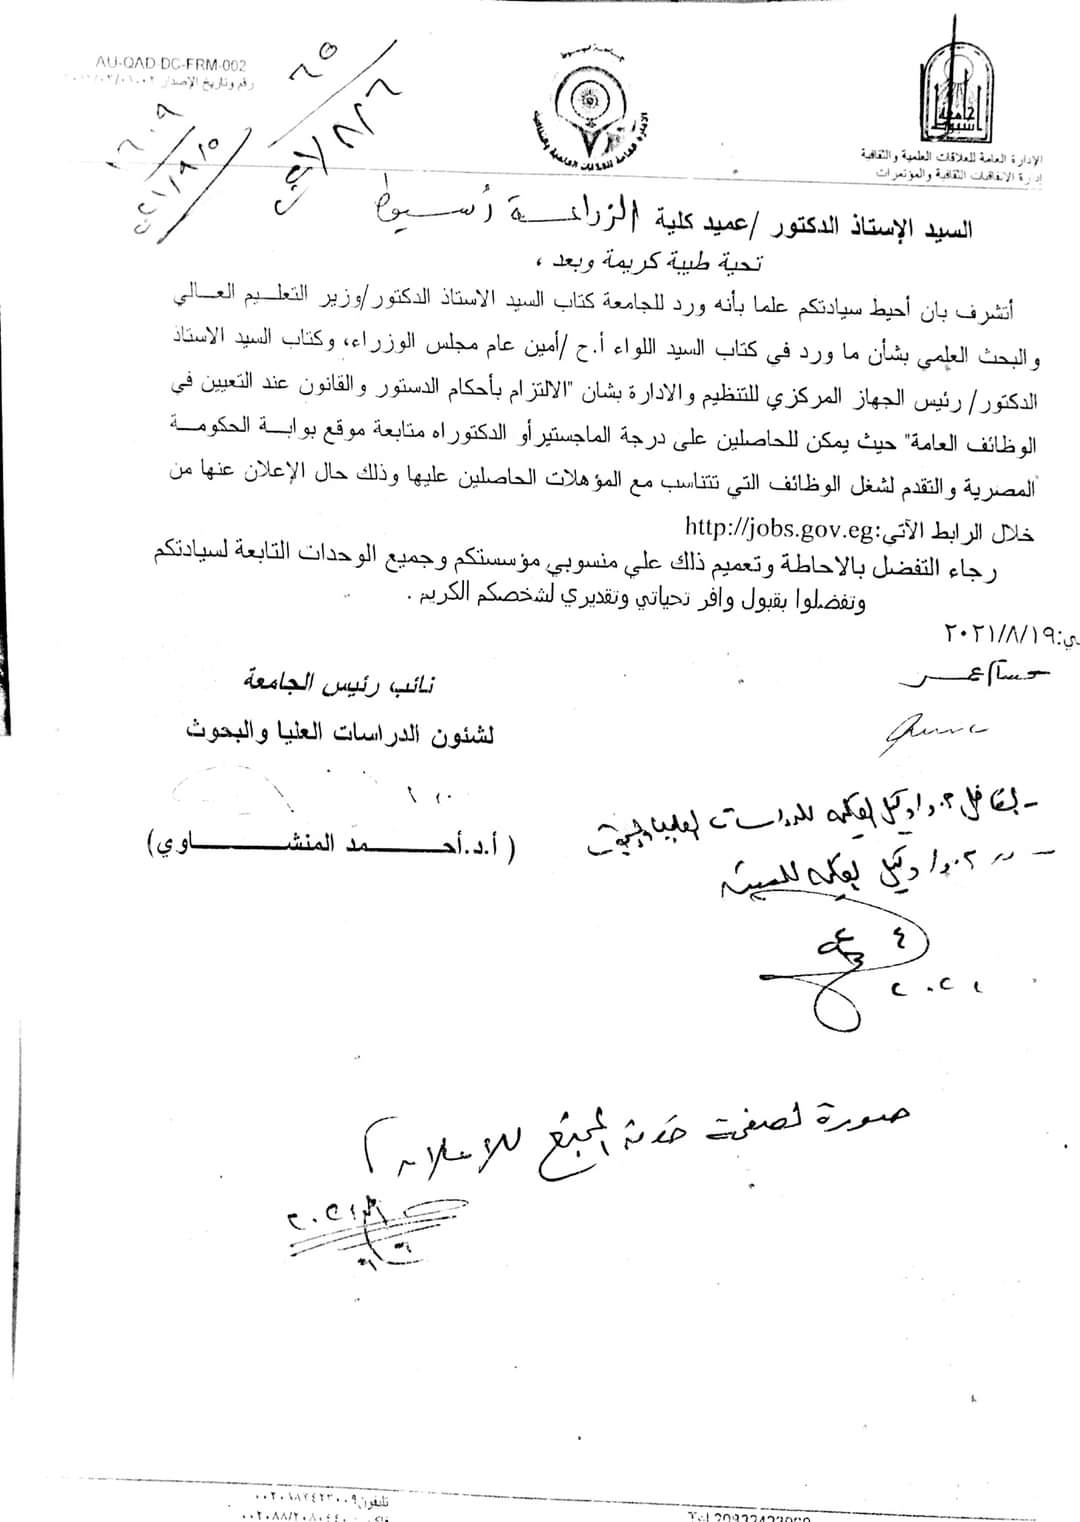 AU-QAD DC-FRM-002
رقم وتاريخ الإصدار
جامعة أسيوط
الإدارة العامة للعلاقات العلمية والثقافية
إدارة الاتفاقيات الثقافية والمؤتمرات
السيد الإستاذ الدكتور /عميد كلية الزراعة أسيوط
تحية طيبة كريمة وبعد ،
أتشرف بان أحيط سيادتكم علما بأنه ورد للجامعة كتاب السيد الاستاذ الدكتور/وزير التعليم العالي
والبحث العلمي بشأن ما ورد في كتاب السيد اللواء أ.ح /أمين عام مجلس الوزراء، وكتاب السيد الاستاذ
الدكتور/ رئيس الجهاز المركزي للتنظيم والادارة بشان "الالتزام بأحكام الدستور والقانون عند التعيين في
الوظائف العامة" حيث يمكن للحاصلين على درجة الماجستيرأو الدكتوراه متابعة موقع بوابة الحكومة
المصرية والتقدم لشغل الوظائف التي تتناسب مع المؤهلات الحاصلين عليها وذلك حال الإعلان عنها من
خلال الرابط الآتي:http://jobs.gov.eg
رجاء التفضل بالاحاطة وتعميم ذلك علي منسوبي مؤسستكم وجميع الوحدات التابعة لسيادتكم
وتفضلوا بقبول وافر تحياتي وتقديري لشخصكم الكريم .
ي:٢٠٢١/٨/١٩
حسام عمر
نائب رئيس الجامعة
لشئون الدراسات العليا والبحوث
(أ.د.أحمد المنشاوي)
وكيل الكلية للدراسات العليا والبحوث
وكيل الكلية للبيئة
صورة لصفحة خدمة المجتمع للاعلان